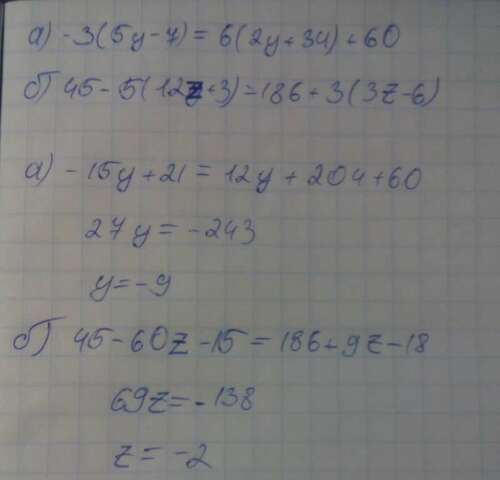 а) -3(5y-7)=6(2y+34)+60
б) 45-5(12z+3)=186+3(3z-6)
а) -15y+21=12y+204+60
27y=-243
y=-9
б) 45-60z-15=186+9z-18
69z=-138
z=-2